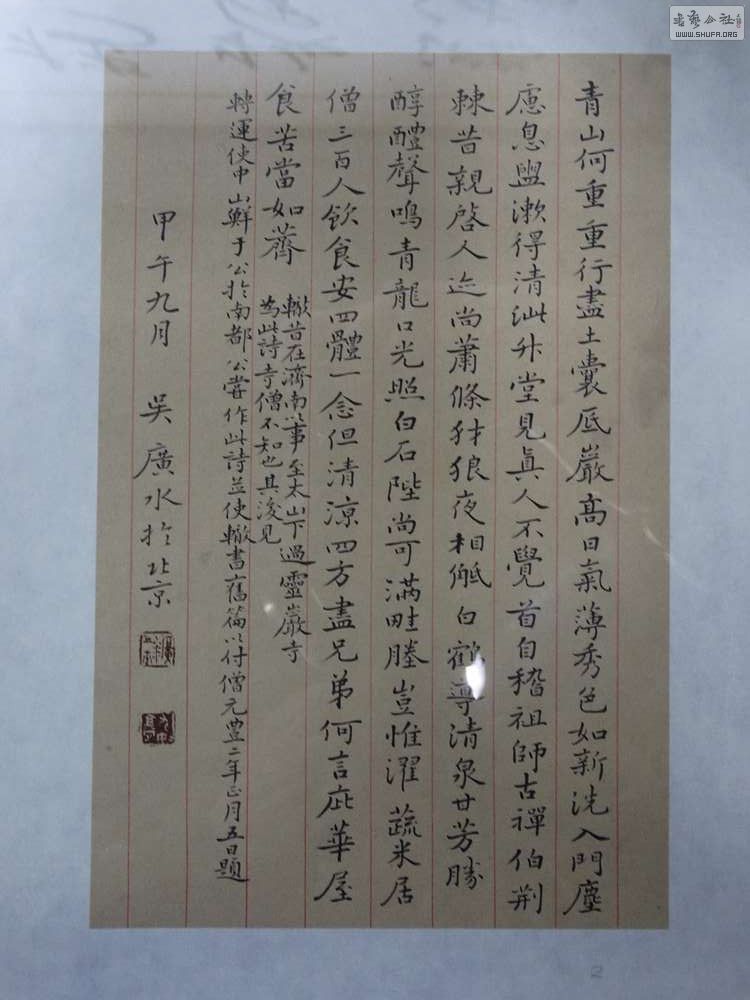 青山何重重行盡土囊底巖高日氣薄秀色如新洗入門塵
慮息盥漱得清泚升堂見真人不覺首自稽祖師古禪伯荆
棘昔親啓人迹尚蕭條豺狼夜相觝白鶴導清泉甘芳勝
醇醴聲鳴青龍口光照白石陛尚可滿畦塍豈惟濯蔬米居
僧三百人飲食安四體一念但清涼四方盡兄弟何言庇華屋
食苦當如薺
轍昔在濟南以事至太山下過靈巖寺
為此詩寺僧不知也其後見
轉運使中山鮮于公於南都公嘗作此詩並使轍書舊篇以付僧元豐二年正月五日題
甲午九月 吳廣水於北京
WWW.SHUFA.ORG
2